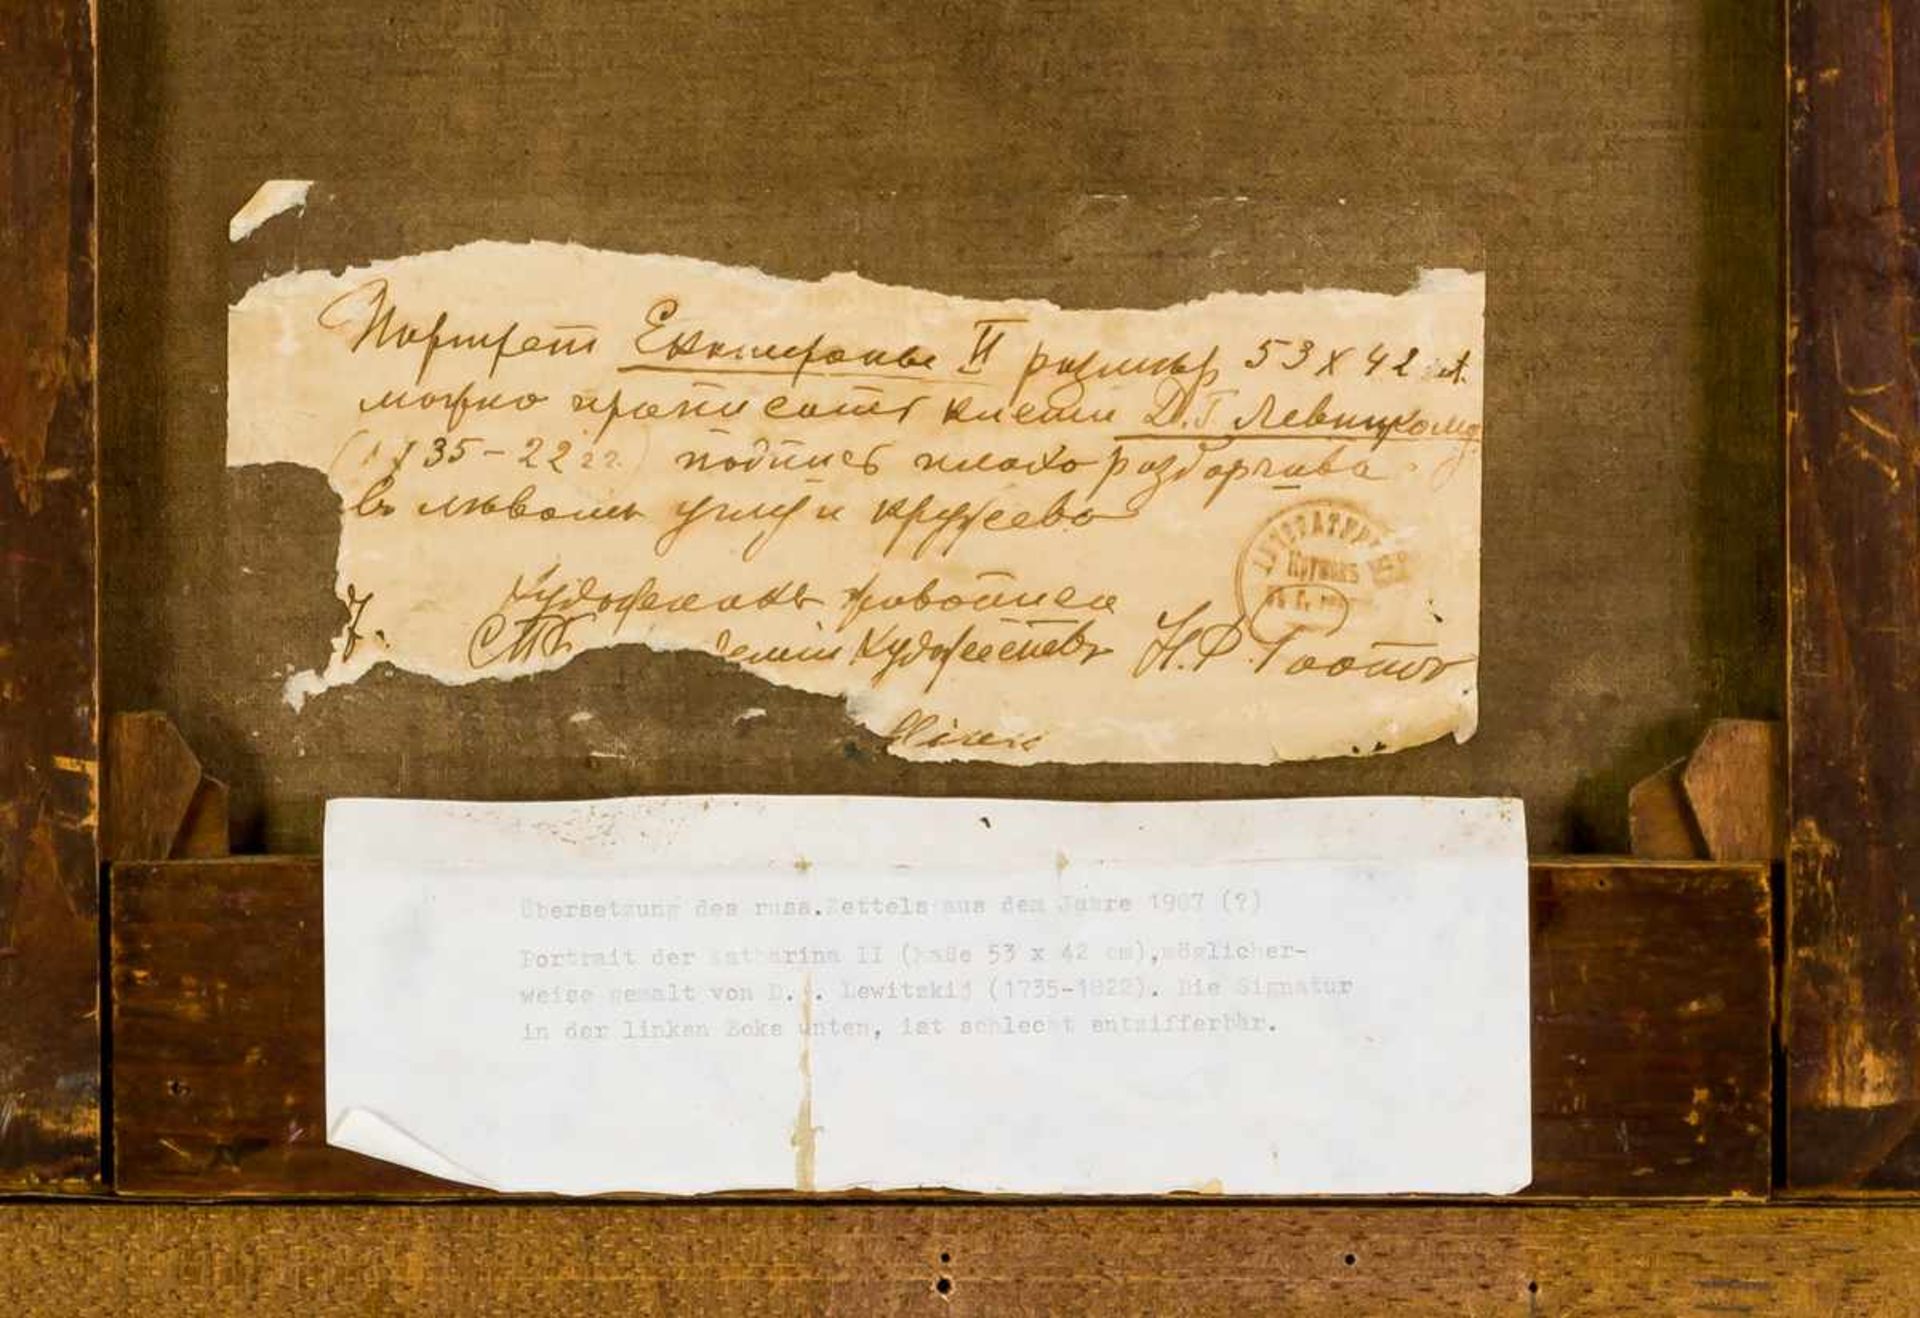 Портретъ Екатерины II размѣръ 53 х 42
можно приписать кисти Д. Г. Левицкому
(1735-22 гг.) подпись плохо разборчива
въ лѣвомъ углу и кружево
Художникъ
СПБ. Художествъ Н. Ф.
Кружокъ
Übersetzung des russ.Zettels aus dem Jahre 1907 (?)
Portrait der Katharina II (Maße 53 x 42 cm),möglicher-
weise gemalt von D. . Lewitzkij (1735-1822). Die Signatur
in der linken Ecke unten, ist schlecht entzifferbar.